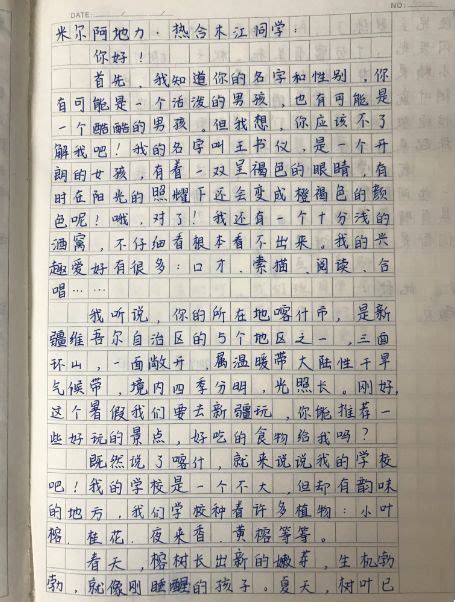 DATE:
NO:
米尔阿地力·热合木江同学:
你好!
首先,我知道你的名字和性别,你
有可能是一个活泼的男孩,也有可能是
一个酷酷的男孩。但我想,你应该不了
解我吧!我的名字叫王书仪,是一个开
朗的女孩,有着一双呈褐色的眼睛,有
时在阳光的照耀下还会变成橙褐色的颜
色呢!哦,对了!我还有一个十分浅的
酒窝,不仔细看根本看不出来。我的兴
趣爱好有很多:口才、素描、阅读、合
唱……
我听说,你的所在地喀什市,是新
疆维吾尔自治区的5个地区之一,三面
环山,一面敞开,属温暖带大陆性干旱
气候带,境内四季分明,光照长。刚好,
这个暑假我们要去新疆玩,你能推荐一
些好玩的景点,好吃的食物给我吗?
既然说了喀什,就来说说我的学校
吧!我的学校是一个不大,但却有韵味
的地方,我们学校种着许多植物:小叶
榕、桂花、夜来香、黄榕等等。
春天,榕树长出新的嫩芽,生机勃
勃,就像刚睡醒的孩子。夏天,树叶已